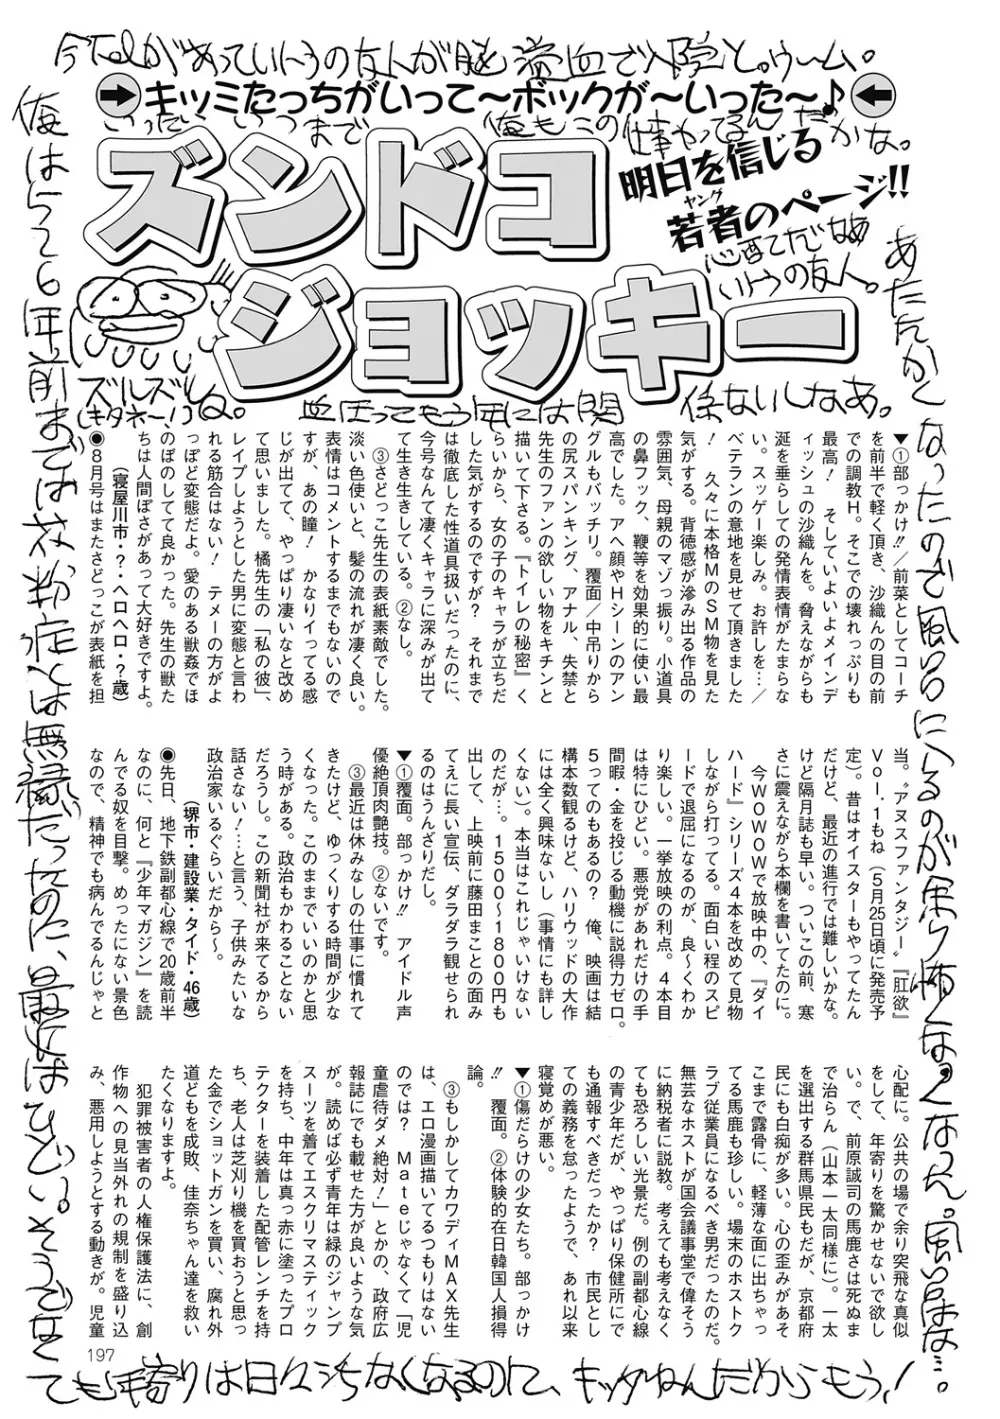 今Telがあっていトうの友人が脳溢血で入院と。ウーム。
キッミたっちがいって〜ボックが〜いった〜♪
いったいいつまで俺もこの仕事やってるんだかな。
ズンドコ
ジョッキー
明日を信じる
若者のページ!!
ヤング
心配てだなあ
いトうの友人。
ズルズル
(キタネー!)ね。
血圧ってもう年には関係ないしなあ。
俺は5〜6年前までは花粉症とは無縁だったのに、最近はひどい。そうでなくても年寄りは日々うちなくなるのに、キッケねんだからもう!
あたたかくなったので風呂に入るのが余り怖くなくなった。風呂はな…。
▼①部っかけ!!/前菜としてコーチ
を前半で軽く頂き、沙織んの目の前
での調教H。そこでの壊れっぷりも
最高! そしていよいよメインデ
ィッシュの沙織んを。脅えながらも
涎を垂らしての発情表情がたまらな
い。スッゲー楽しみ。お許しを…/
ベテランの意地を見せて頂きました
! 久々に本格MのSM物を見た
気がする。背徳感が滲み出る作品の
雰囲気、母親のマゾっ振り。小道具
の鼻フック、鞭等を効果的に使い最
高でした。アヘ顔やHシーンのアン
グルもバッチリ。覆面/中吊りから
の尻スパンキング、アナル、失禁と
先生のファンの欲しい物をキチンと
描いて下さる。『トイレの秘密』く
らいから、女の子のキャラが立ちだ
した気がするのですが? それまで
は徹底した性道具扱いだったのに、
今号なんて凄くキャラに深みが出て
て生き生きしている。②なし。
③さどっこ先生の表紙素敵でした。
淡い色使いと、髪の流れが凄く良い。
表情はコメントするまでもないので
すが、あの瞳! かなりイってる感
じが出てて、やっぱり凄いなと改め
て思いました。橘先生の「私の彼」、
レイプしようとした男に変態と言わ
れる筋合はない! テメーの方がよ
っぽど変態だよ。愛のある獣姦でほ
のぼのしてて良かった。先生の獣た
ちは人間ぽさがあって大好きですよ。
(寝屋川市・?・ヘロヘロ・?歳)
◉8月号はまたさどっこが表紙を担
当。〝アヌスファンタジー〟『肛欲』
Vol.1もね(5月25日頃に発売予
定)。昔はオイスターもやってたん
だけど、最近の進行では難しいかな。
けど隔月誌も早い。ついこの前、寒
さに震えながら本欄を書いてたのに。
今WOWOWで放映中の、『ダイ
ハード』シリーズ4本を改めて見物
しながら打ってる。面白い程のスピ
ードで退屈になるのが、良〜くわか
り楽しい。一挙放映の利点。4本目
は特にひどい。悪党があれだけの手
間暇・金を投じる動機に説得力ゼロ。
5ってのもあるの? 俺、映画は結
構本数観るけど、ハリウッドの大作
には全く興味ないし(事情にも詳し
くない)。本当はこれじゃいけない
のだが…。1500〜1800円も
出して、上映前に藤田まことの面み
てえに長い宣伝、ダラダラ観せられ
るのはうんざりだし。
▼①覆面。部っかけ!! アイドル声
優絶頂肉艶技。②ないです。
③最近は休みなしの仕事に慣れて
きたけど、ゆっくりする時間が少な
くなった。このままでいいのかと思
う時がある。政治もかわることない
だろうし。この新聞社が来てるから
話さない!…と言う、子供みたいな
政治家いるぐらいだから〜。
(堺市・建設業・タイド・46歳)
◉先日、地下鉄副都心線で20歳前半
なのに、何と『少年マガジン』を読
んでる奴を目撃。めったにない景色
なので、精神でも病んでるんじゃと
心配に。公共の場で余り突飛な真似
をして、年寄りを驚かせないで欲し
い。で、前原誠司の馬鹿さは死ぬま
で治らん(山本一太同様に)。一太
を選出する群馬県民もだが、京都府
民にも白痴が多い。心の歪みがあそ
こまで露骨に、軽薄な面に出ちゃっ
てる馬鹿も珍しい。場末のホストク
ラブ従業員になるべき男だったのだ。
無芸なホストが国会議事堂で偉そう
に納税者に説教。考えても考えなく
ても恐ろしい光景だ。例の副都心線
の青少年だが、やっぱり保健所にで
も通報すべきだったか? 市民とし
ての義務を怠ったようで、あれ以来
寝覚めが悪い。
▼①傷だらけの少女たち。部っかけ
!! 覆面。②体験的在日韓国人損得
論。
③もしかしてカワディMAX先生
は、エロ漫画描いてるつもりはない
のでは? Mateじゃなくて「児
童虐待ダメ絶対!」とかの、政府広
報誌にでも載せた方が良いような気
が。読めば必ず青年は緑のジャンプ
スーツを着てエスクリマスティック
を持ち、中年は真っ赤に塗ったプロ
テクターを装着した配管レンチを持
ち、老人は芝刈り機を買おうと思っ
た金でショットガンを買い、腐れ外
道どもを成敗、佳奈ちゃん達を救い
たくなりますよ。
犯罪被害者の人権保護法に、創
作物への見当外れの規制を盛り込
み、悪用しようとする動きが。児童
197